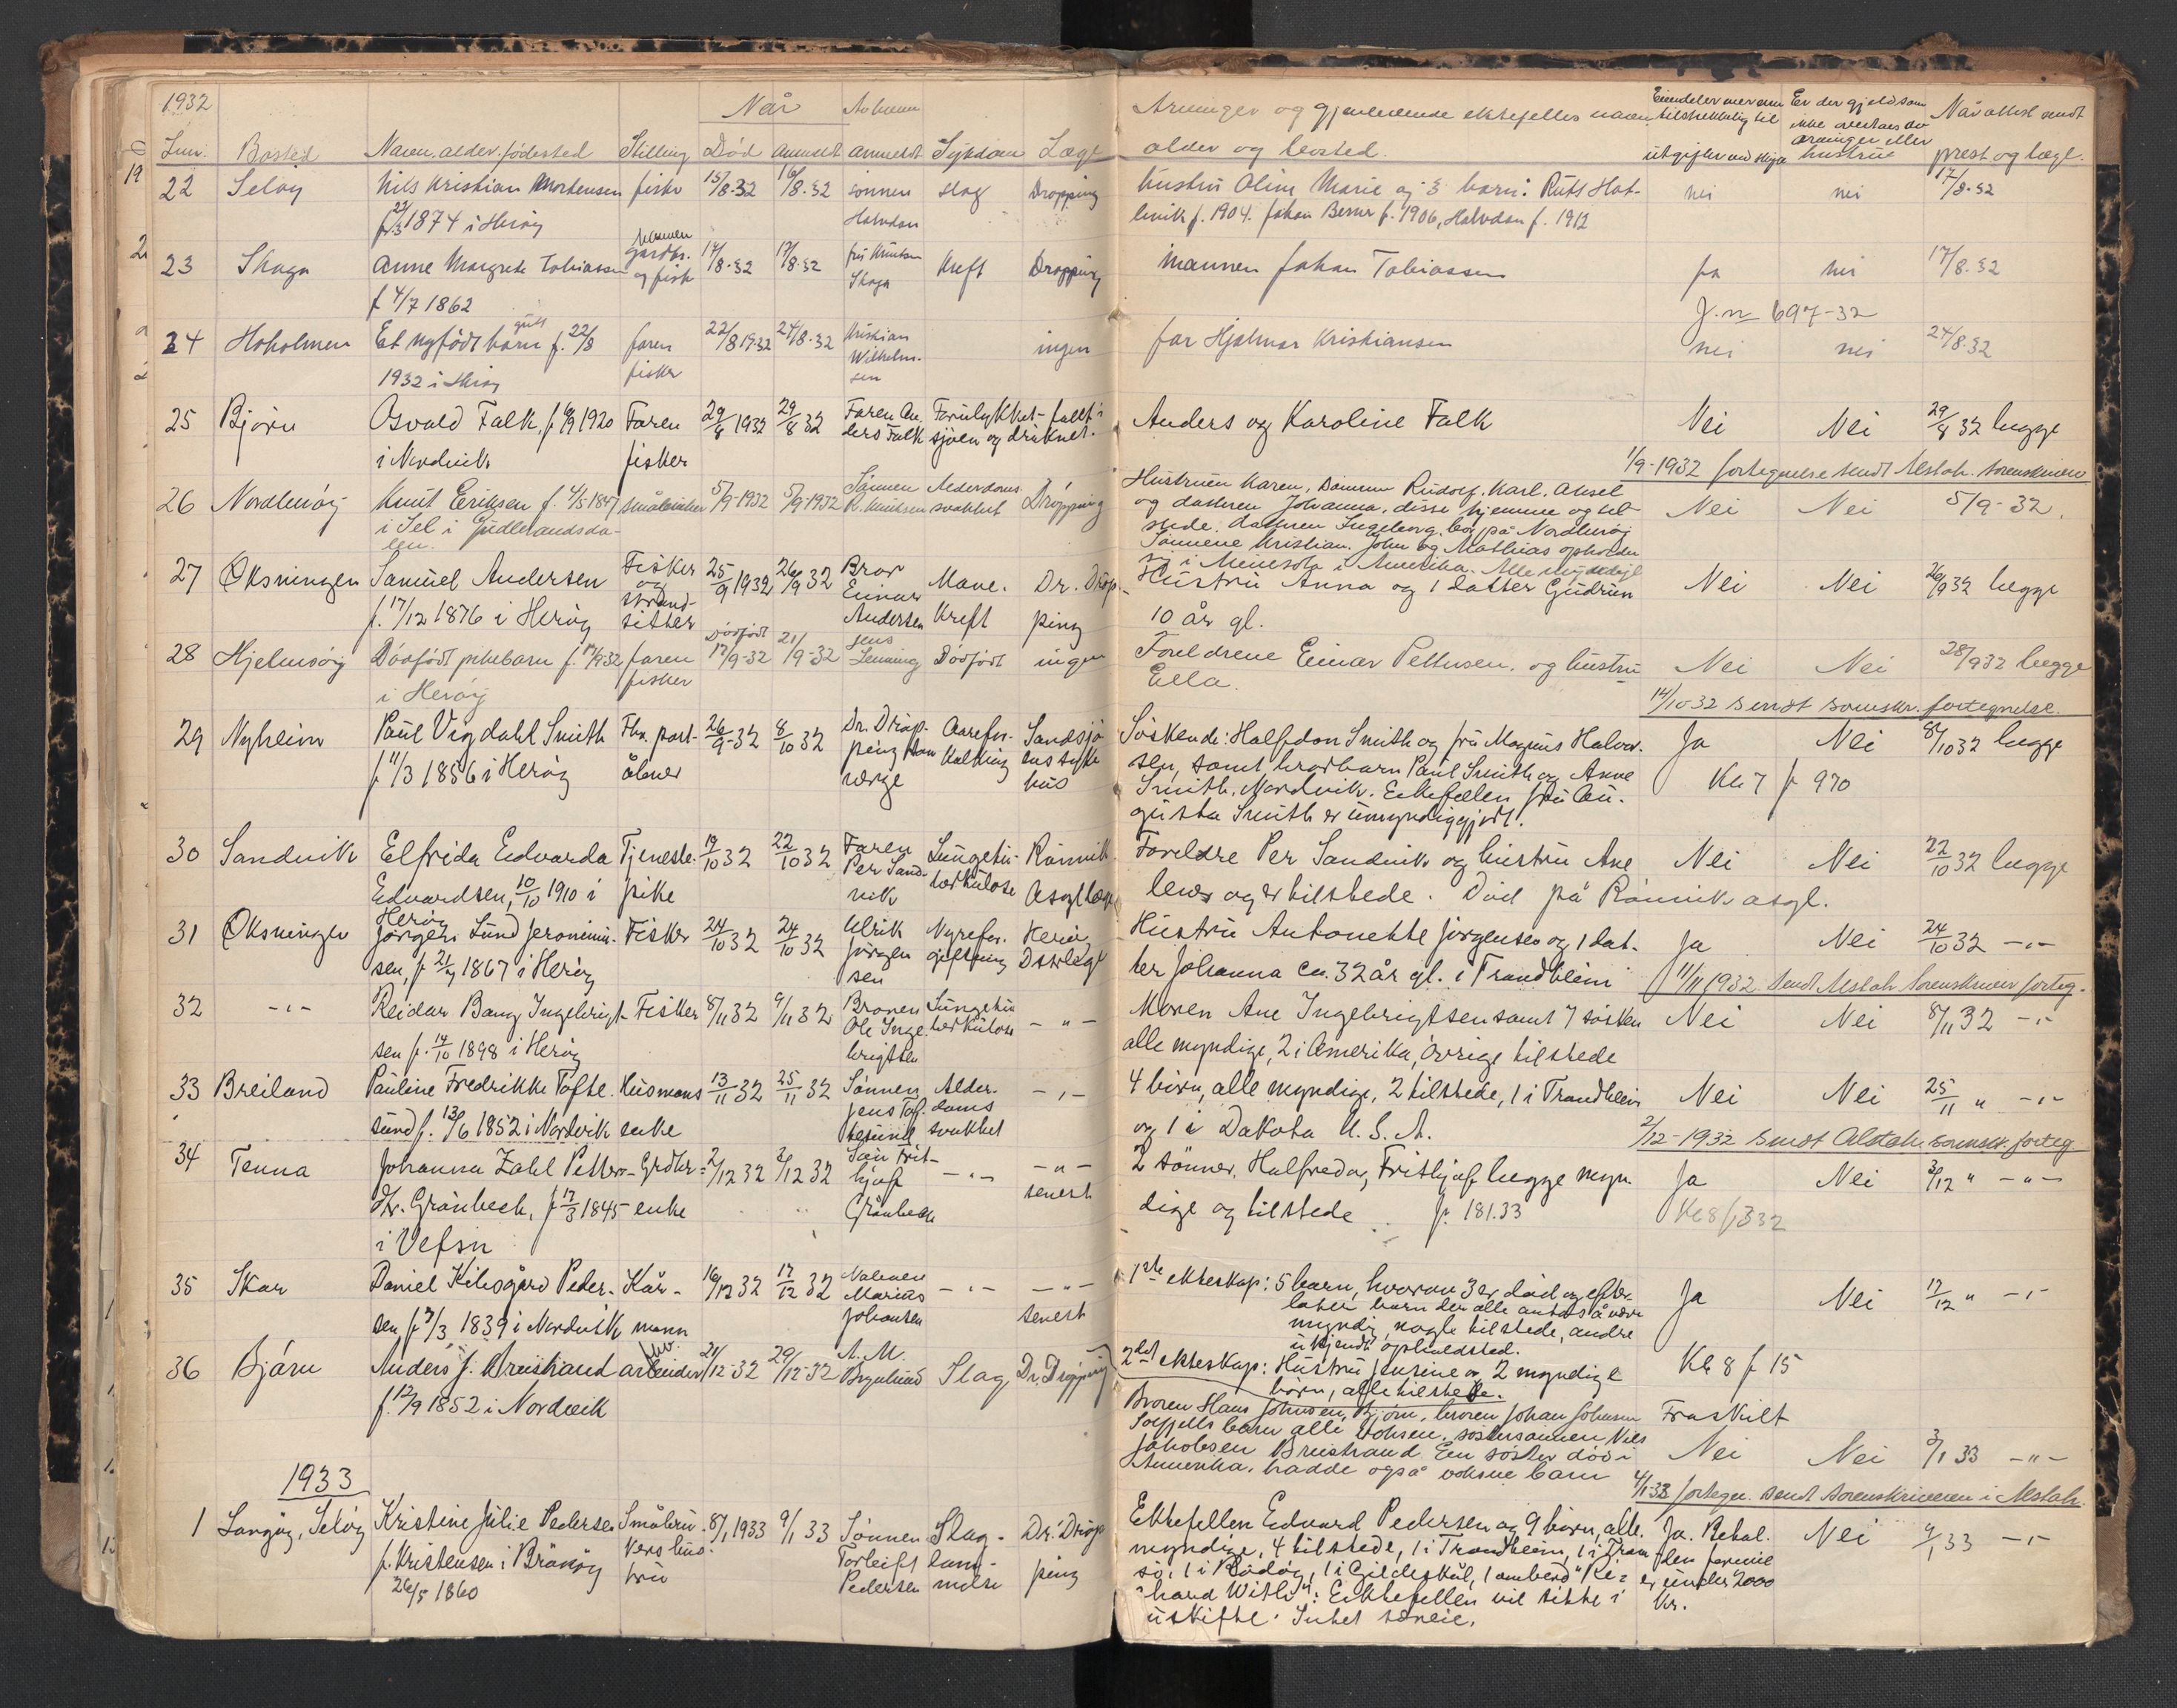 1932
Når
Død
Bosted Navn, alder, fødested Stilling Død anmeldt anmeldt Sykdom Læge
22 Seløy Nils Kristian Mortensen fisker 15/8-32 16/8-32 sønnen slag Drøpping
1874 i Herøy Halvdan
23 Skaga Anne Margrete Tobiassen gårdbr. 14/8-32 17/8-32 fru Knutsen kreft Drøpping
og fisk Skaga
f 4/7 1862
24 Hoholmen Et nyfødt barn f. 22/8 faren 22/8 1932 24/8-32 Kristian ingen
gutt
1932 i Herøy fisker Wilhelm-
sen
25 Bjørn Osvald Falk, f. 1920 Faren 29/8 1932 29/8 32 Faren An- Forulykket - fallt i
ders Falk sjøen og druknet.
i Nordvik fisker
26 Nordherøy Knut Eriksen f. 4/5 1847 småbruker 5/9-1932 5/9-1932 Sønnen Alderdoms- Drøpping
i Sel i Gudbrandsda- R. Knutsen svakhet
len.
27 Øksningen Samuel Andersen Fisker 25/9 1932 26/9 32 Bror Mave- Dr. Drøp-
og Einar
f. 17/12 1876 i Herøy strand- Andersen Kreft ping
sitter
28 Hjelmsøy Dødfødt pikebarn f. 17/9 32 faren Dødfødt 17/9-32 21/9-32 Jens Dødfødt ingen
i Herøy fisker Lenning
29 Nyheim Paul Vigdahl Smith Fhv. post- 26/9-32 8/10 32 Dr. Drøp- Aarefor- Sandsjø
ping som kalkning ens syke
f 11/3 1856 i Herøy åbner verge hus
30 Sandvik Elfrida Edvarda Tjeneste- 19/10 32 22/10 32 Faren Lungetu- Rønvik
Per Sand- berkulose
Edvardsen, 10/10 1910 i pike vik Asyl læge
Herøy
31 Øksningen Jørgen Lund Jeronimus- Fisker 24/10 32 24/10 32 Ulrik Nyrefor- Herøy
sen, f 1867 i Herøy Jørgen- giftning Dstrlæge
sen
32 -"- Reidar Bang Ingebrigt- Fisker 8/11 32 9/11 32 Broren Lungetu- -"-
Ole Inge- berkulose
sen f. 14/10 1898 i Herøy brigtsen
33 Breiland Pauline Fredrikke Tofte- Husmans 13/11 32 25/11 32 Sønnen Alder- -"-
Jens Tof- doms
sund f. 13/6 1852 i Nordvik enke tesund svakhet
34 Tenna Johanna Zahl Petters- Grdbr- 2/12 32 3/12 32 Søn Frit- -"- -"-
hjof senest
dtr. Grønbeck, f 17/3 1845 enke Grønbeck
i Vefsn
35 Skar Daniel Kilesgård Peder- Kår- 16/12 32 17/12 32 Marius -"- -"-
sen, 1839 i Nordvik mann Johansen senest
36 Bjørn Anders J. Breistrand arbeider 21/12-32 29/12-32 A. M. Slag Dr. Drøpping
f. 12/9 1852 i Nordvik
1933
1 Langøy, Seløy Kristine Julie Pedersen Småbru- 8/1 1933 9/1 33 Sønnen Slag- Dr. Drøp-
f. Kristensen i Brønnøy kers hus- Torleift lam- ping
26/5 1860 tru Pedersen melse
Arvinger og gjenlevende ektefelles navn,
alder og bosted.
Eiendeler mer enn
tilstrekkelig til
utgifter ved
Er der gjeld som
ikke overtaes av
arvinger eller
hustrue
Når attest sendt
prest og læge.
Hustru Oline Marie og 3 barn: Ruts Hat- nei nei 17/8-32
lenik f. 1904. Johan Berner f. 1906, Halvdan f. 1912
Mannen Johan Tobiassen ja nei 17/8-32
J.nr 697-32
far Hjalmar Kristiansen nei nei 24/8-32
Anders og Karoline Falk Nei Nei 29/8 32 begge
1/9-1932 fortegnelse sendt Alstah. sorenskriver
Hustruen Karen, Sønnene Rudolf, Karl, Aksel
og datteren Johanna, disse hjemme og til- Nei Nei 5/9-32.
stede. datteren Ingeborg bor på Nordherøy
Sønnene Kristian, John og Mathias opholder
sig i Menesota i Amerika. Alle myndige
Hustru Anna og 1 datter Gudrun Nei Nei 26/9 32 begge
10 år gl.
Foreldrene Einar Pettersen og hustru Nei Nei 28/9 32 begge
Ella.
14/10 32 Sendt sorenskr. fortegnelse.
Søskende: Halfdan Smith og fru Magnus Halvor- Ja Nei 8/10 32 begge
sen, samt brorbarn Paul Smith og Anne Kl 7 f 970
Smith, Nordvik. Ektefellen fru Au-
gusta Smith er umyndiggjort.
Foreldre Per Sandvik og hustru Ane Nei Nei 22/10 32 begge
lever og er tilstede. Død på Rønvik asyl.
Hustru Antonette Jørgensen og 1 dat- Ja Nei 24/10 32 -"-
ter Johanna ca. 32 år gl. i Trondheim 11/11 1932 Sendt Alstah. Sorenskriver forteg.
Moren Ane Ingebrigtsen samt 7 søsken Nei Nei 8/11 32 -"-
alle myndige, 2 i Amerika, øvrige tilstede
4 børn, alle myndige, 2 tilstede, 1 i Trondheim Nei Nei 25/11 " -"-
og 1 i Dakota U.S.A. 2/12-1932 Sendt Alstah. sorenskr. forteg.
2 sønner, Halfred og Frithjof begge myn- Ja Nei 3/12 " -"-
dige og tilstede f. 181.33
1ste ekteskap: 5 barn, hvorav 3 er død og efter-
later barn der alle antas å være Ja Nei 17/12 " -"-
myndig, nogle tilstede, andre
ukjendt opholdsted.
2det ekteskap: Hustru Jensine og 2 myndige Kl 8 f 15
børn, alle tilstede.
Broren Hans Johnsen, Bjørn, broren Johan Johnsen Fraskilt
barn alle voksen, søstersønnen Nils
Jakobsen Breistrand. En søster død i Nei Nei 3/1 33 -"-
Amerika, hadde også voksne barn
4/1 33 fortegn. sendt sorenskriveren i Alstah.
Ektefellen Edvard Pedersen og 9 børn, alle Ja. Behol- Nei 9/1 33 -"-
myndige, 4 tilstede, 1 i Trondheim, 1 i Trom- den formue
sø, 1 i Rødøy, 1 i Gildeskål, 1 ombord "Ri- er under 2000
chard With". Ektefellen vil sitte i kr.
uskifte. Intet særeie.